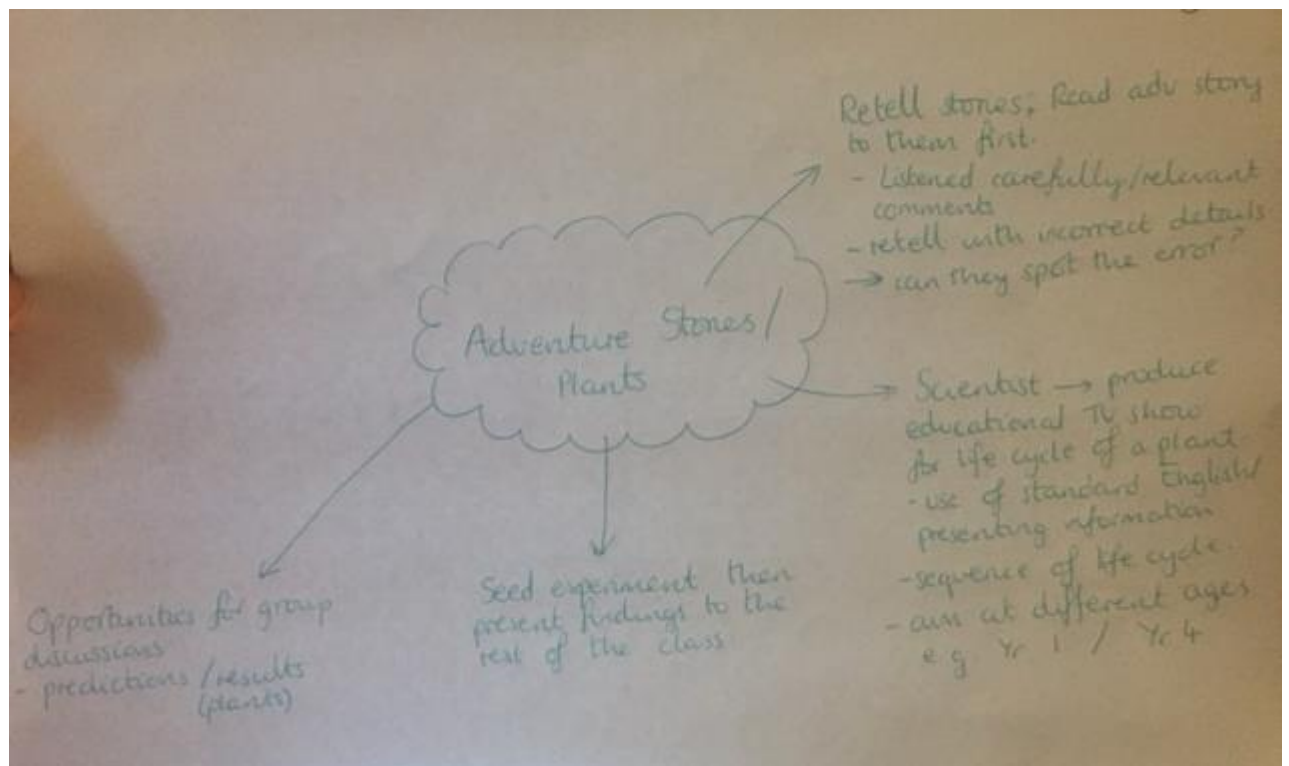 Adventure Stories/
Plants
Retell stories; Read adv story
to them first.
- Listened carefully/relevant
comments
- retell with incorrect details
→ can they spot the error?
Scientist → produce
educational TV show
for life cycle of a plant
- use of standard English/
presenting information
- sequence of life cycle.
- aim at different ages
e.g Yr 1 / Yr 4
Seed experiment then
present findings to the
rest of the class
Opportunities for group
discussions
- predictions / results
(plants)